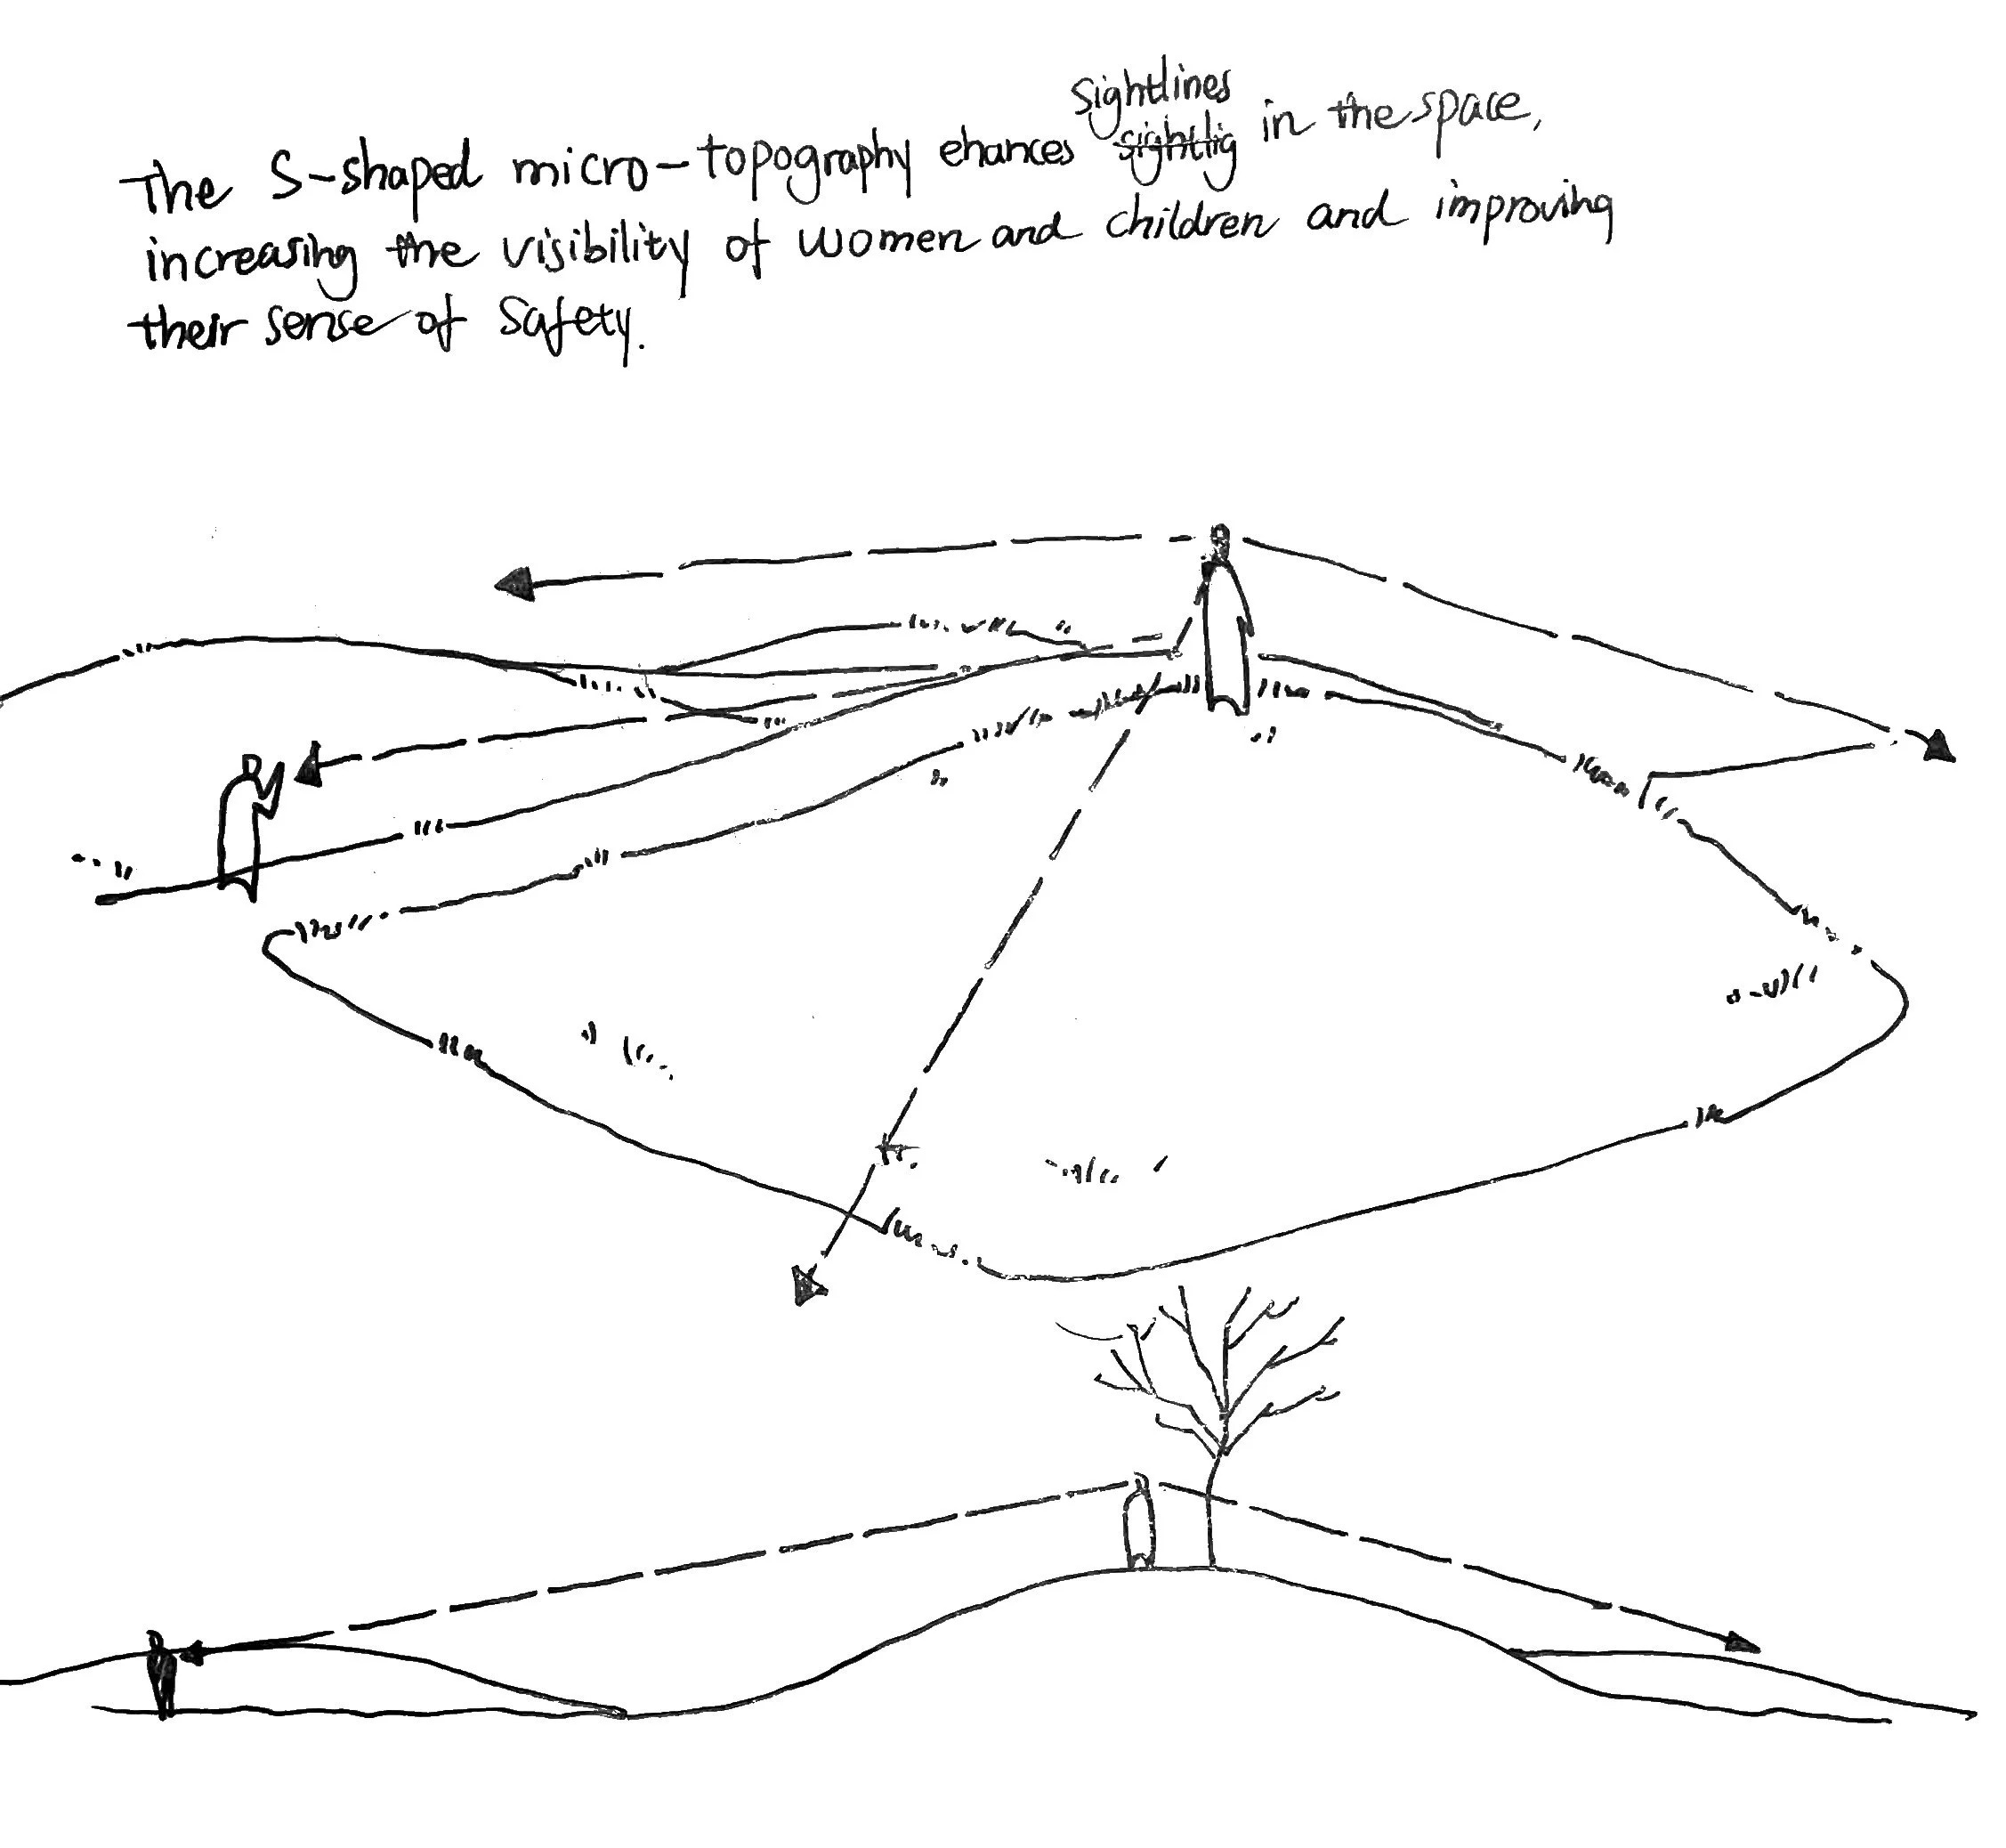 The S-shaped micro-topography ehances sightlines in the space,
increasing the visibility of women and children and improving
their sense of safety.